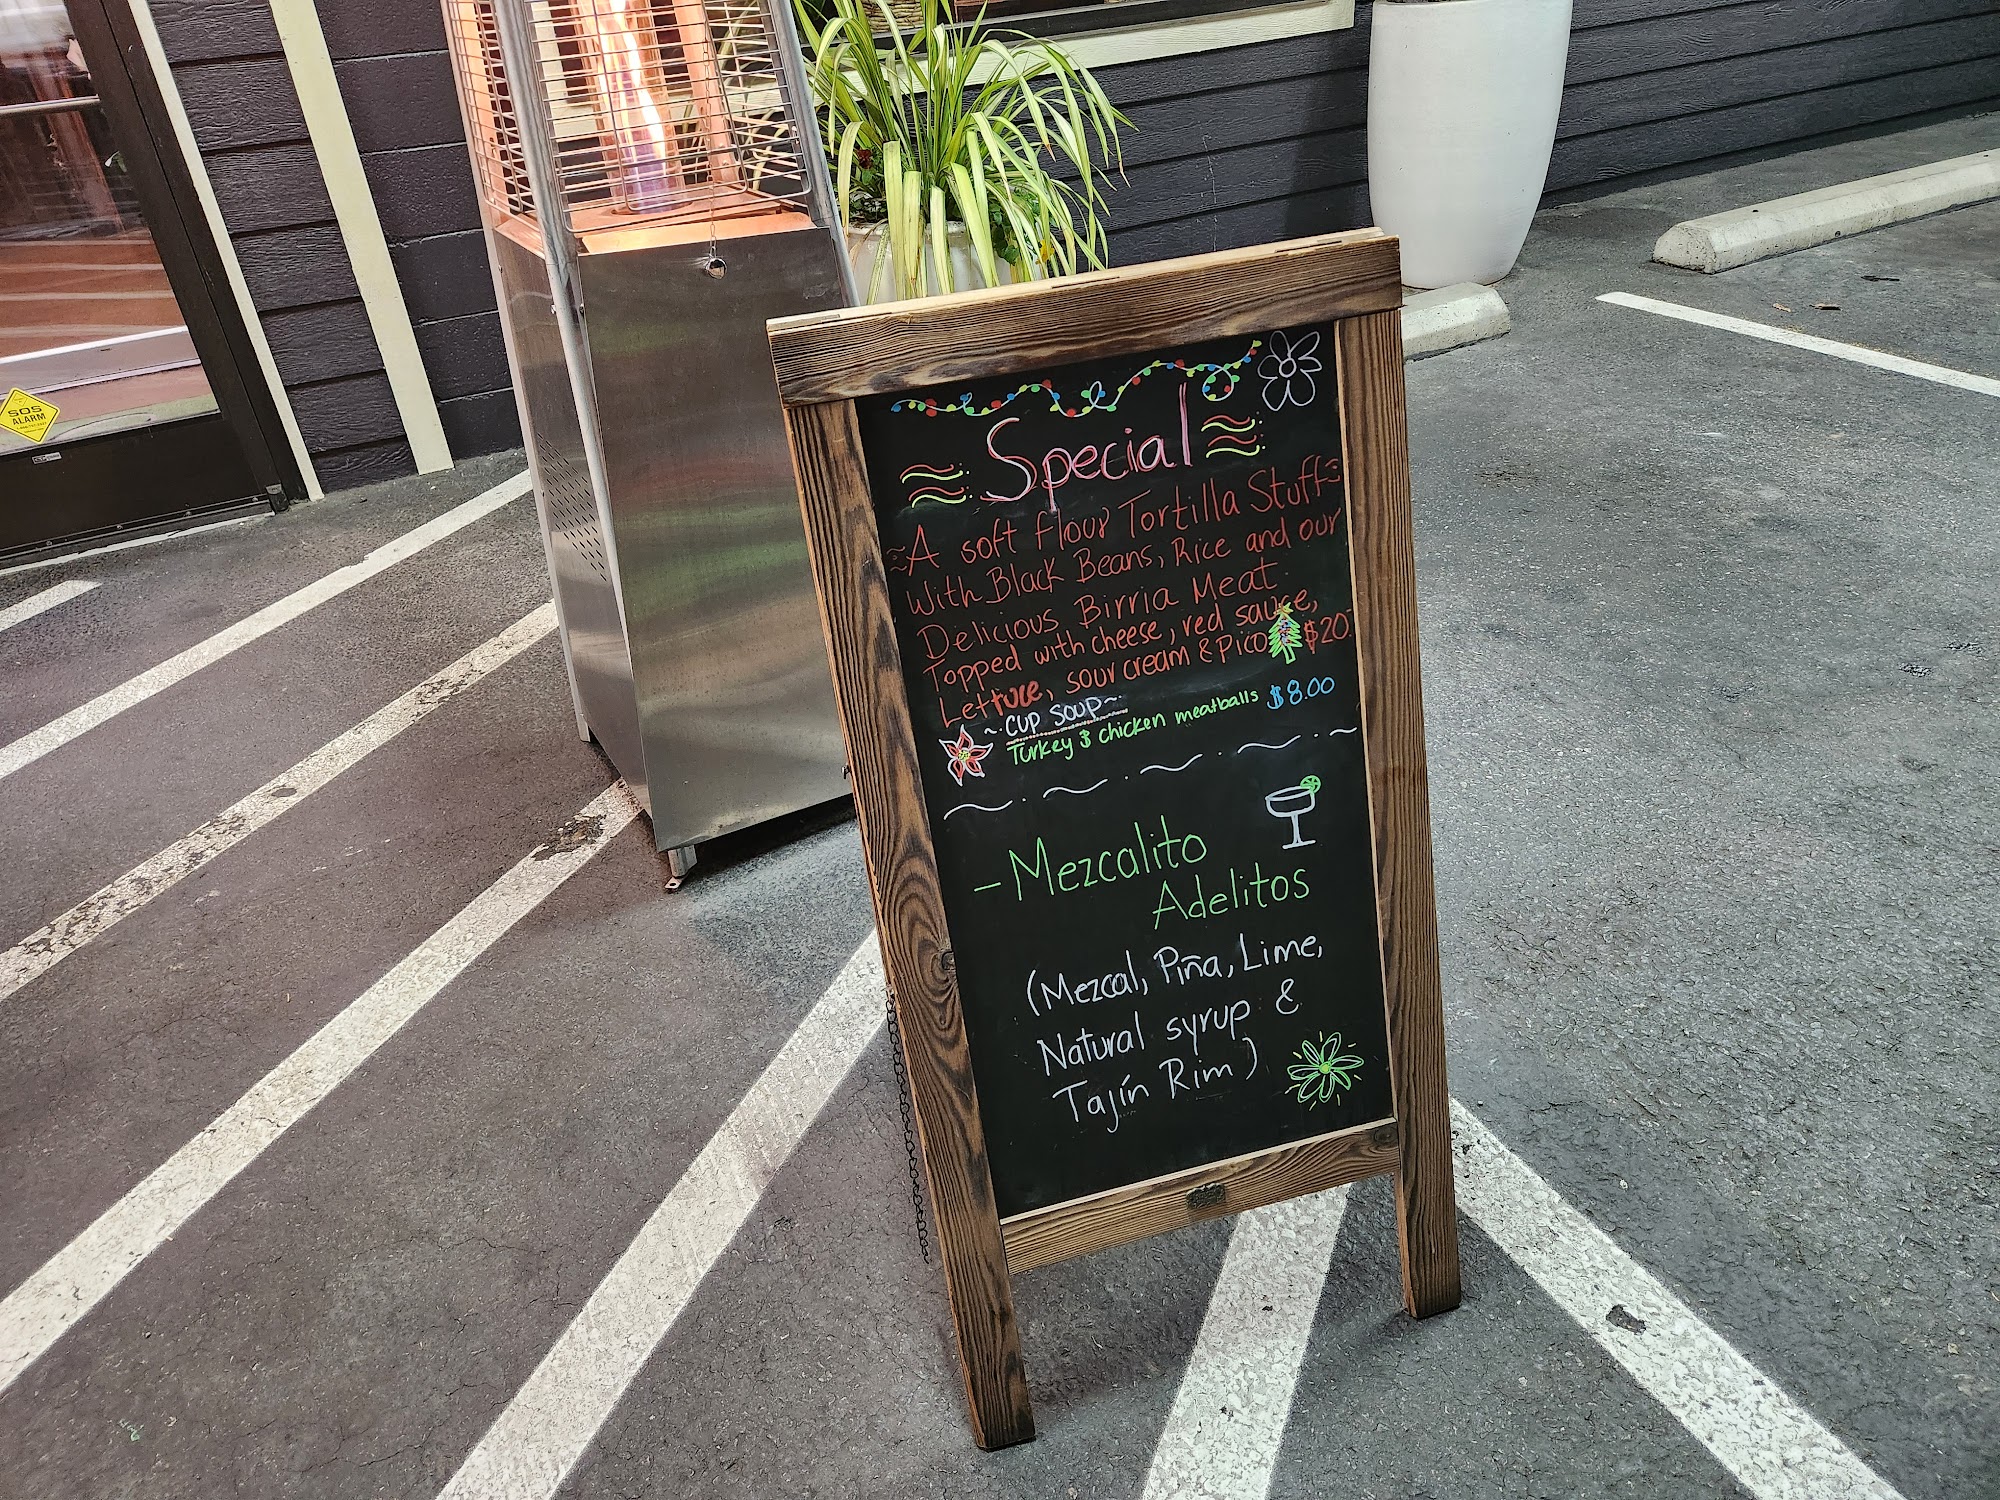 SOS
ALARM
Special
A soft flour Tortilla Stuff
With Black Beans, Rice and our
Delicious Birria Meat.
Topped with cheese, red sauce,
Lettuce, sour cream & Pico $20.
~ CUP SOUP ~
Turkey & chicken meatballs $8.00
- Mezcalito
Adelitos
(Mezcal, Piña, Lime,
Natural syrup &
Tajín Rim)